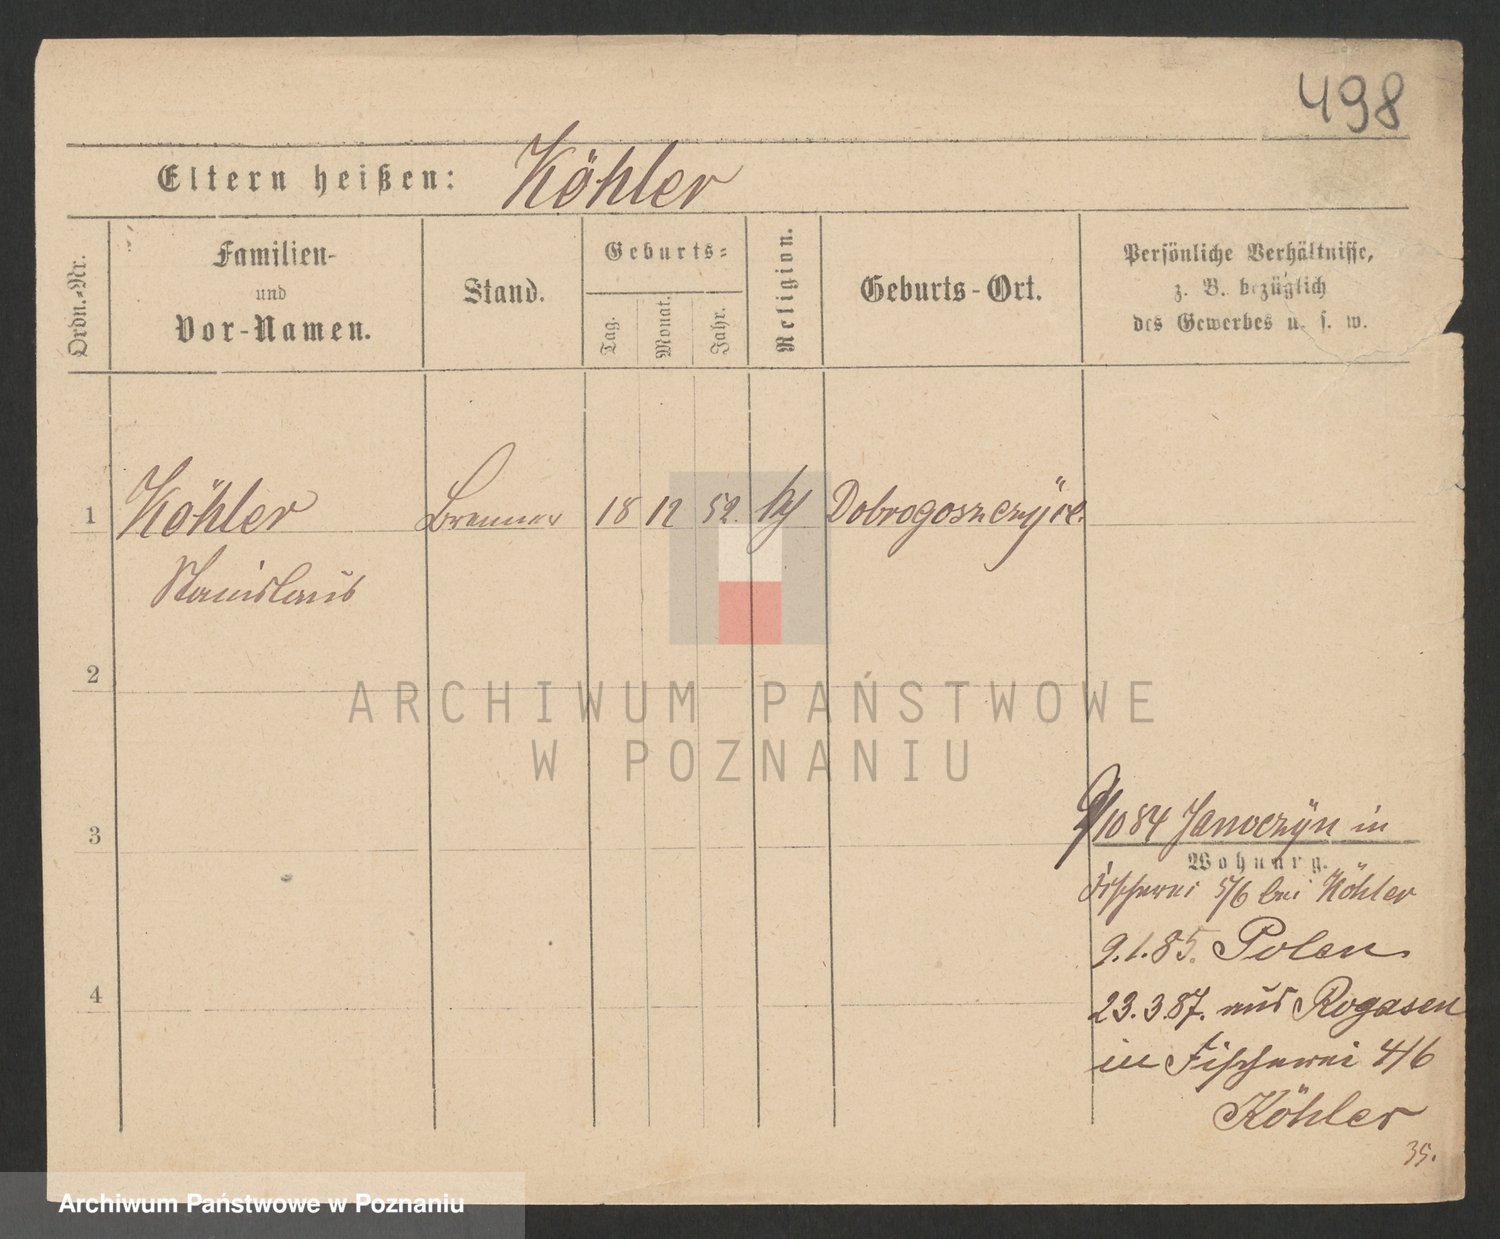 498
Eltern heißen: Köhler
Ordn.-Nr.
Familien-
und
Vor-Namen.
Stand.
Geburts-
Tag.
Monat.
Jahr.
Religion.
Geburts-Ort.
Persönliche Verhältnisse,
z. B. bezüglich
des Gewerbes u. s. w.
1 Köhler Brenner 18 12 52. Dobrogoszczyce.
Stanislaus
2
ARCHIWUM PAŃSTWOWE
W POZNANIU
3
/10 84 Janoczÿn in
Wohnung.
Fischerei 5/6 bei Köhler
9.1.85. Polen
4
23.3.87. aus Rogasen
in Fischerei 4/6
Köhler
35.
Archiwum Państwowe w Poznaniu